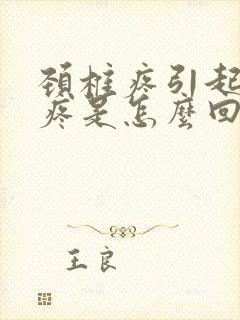 頚椎疼引起
疼是怎麼回
王良